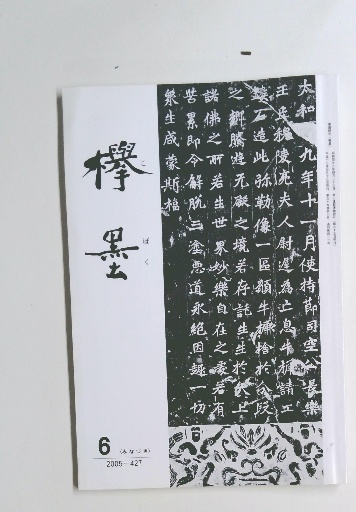 太和 九年十一月使持節司空公長樂
王丘穆陵亮夫人尉遲為亡息牛橛請工
鏤石造此弥勒像一區願牛橛捨於分段
之鄉騰遊无礙之境若存託生生於天上
諸佛之所若生世界妙樂自在之處若有
苦累即令解脫三塗惡道永絕因趣一切
衆生咸蒙斯福
欅墨
ぼく
6
(みなづき)
2005—427